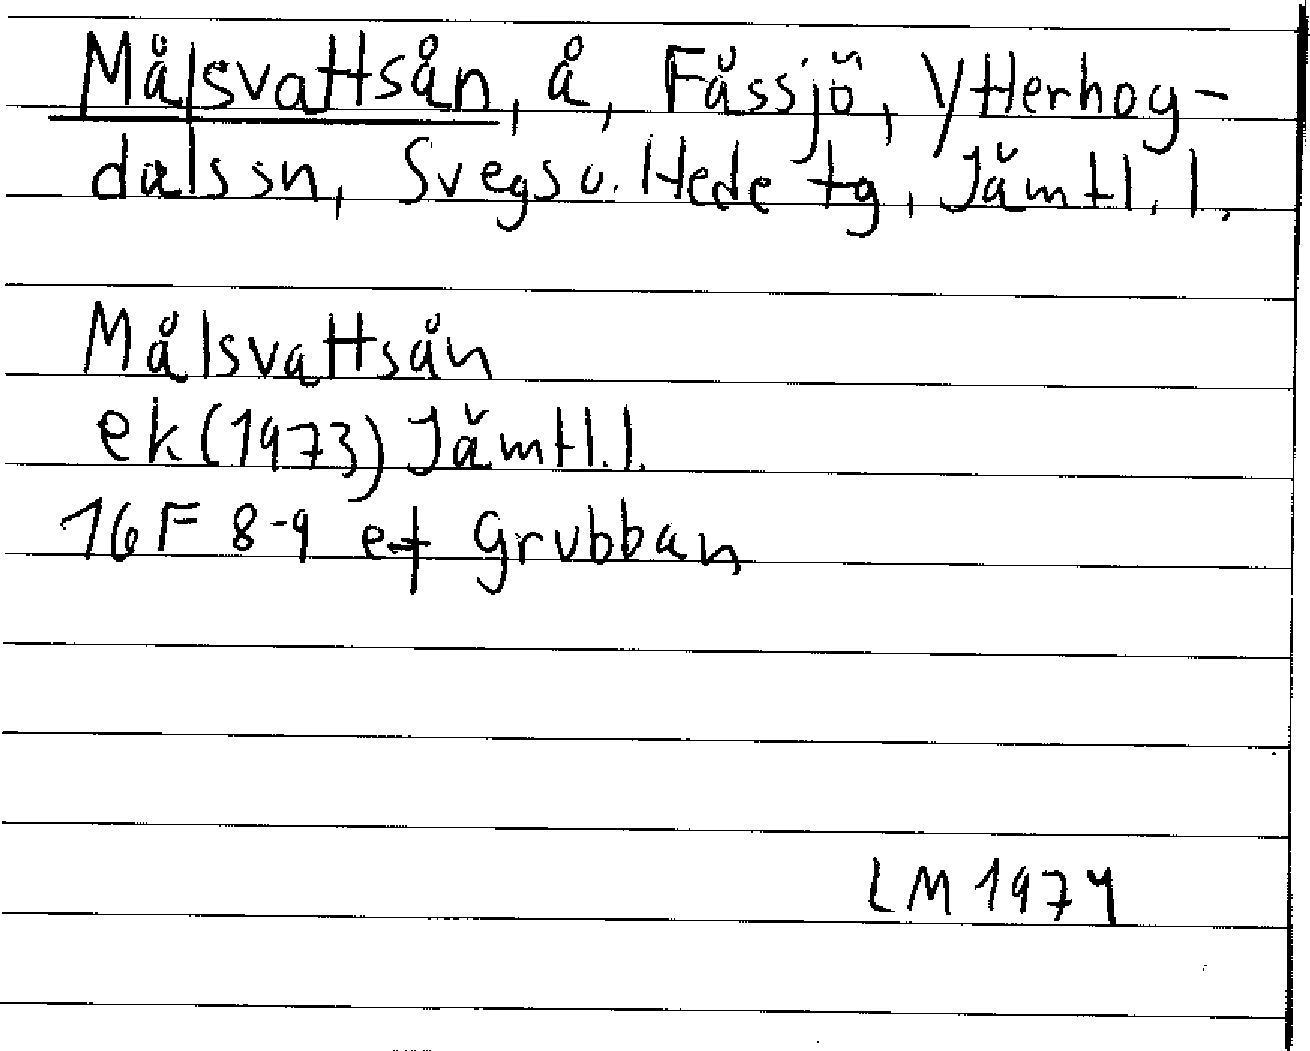 Målsvattsån, å, Fåssjö, Ytterhog-
dalssn, Svegs o. Hede tg, Jämtl. l.
Målsvattsån
ek (1973) Jämtl. l.
16F 8-9 ef Grubban
LM 1974